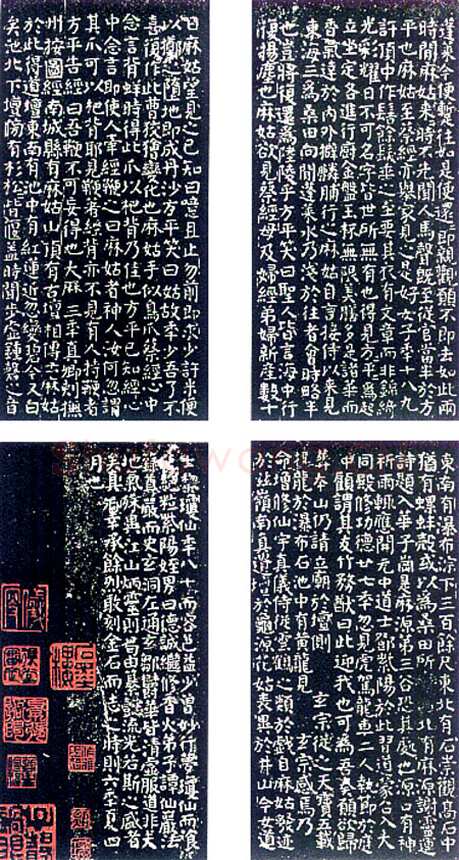 蓬萊今便暫往如是便還即親觀願不即去如此兩
時間麻姑來時不先聞人馬聲既至從官當半於方
平也麻姑至蔡經亦舉家見之是好女子年十八九
許頂中作髻餘髮垂之至要其衣有文章而非錦綺
光彩耀日不可名字皆世所無有也得見方平方平為起
立坐定各進行廚金盤玉杯無限美膳多是諸華而
香氣達於內外擗麟脯行之麻姑自言接侍以來見
東海三為桑田向間蓬萊水乃淺於往者會時略半
也豈將復還為陸陵乎方平笑曰聖人皆言海中行
復揚塵也麻姑欲見蔡經母及婦經弟婦新產數十
日麻姑望見之已知曰噫且止勿前即求少許米便
以擲之墮地即成丹沙方平笑曰姑故年少吾了不
喜復作此曹狡獪變化也麻姑手似鳥爪蔡經心中
念言背蛘時得此爪以杷背乃佳也方平已知經心
中念言即使人牽經鞭之曰麻姑者神人汝何忽謂
其爪可以杷背耶見鞭著經背亦不見有人持鞭者
方平告經曰吾鞭不可妄得也大曆三年真卿刺撫
州按圖經南城縣有麻姑山頂有古壇相傳云麻姑
於此得道壇東南有池中有紅蓮近忽變碧今又白
矣池北下壇傍有杉松皆偃蓋時聞步虛鐘磬之音
東南有瀑布淙下三百餘尺東北有石崇觀高石中
猶有螺蚌殼或以為桑田所北有麻源謝靈運
詩題入華子崗是麻源第三谷恐其處也源口有神
祈雨輒應開元中道士鄧紫陽於此習道蒙召入大
同殿修功德廿七年忽見虎駕龍車二人執節於庭
中顧謂其友竹務猷曰此迎我也可為吾奏願欲歸
葬本山仍請立廟於壇側 玄宗從之天寶五載
投龍於瀑布石池中有黃龍見 玄宗感焉乃
命增修仙宇真儀侍從雲鶴之類於戲自麻姑發迹
於茲嶺南真遺壇於龜源花姑表異於井山今女道
士黎瓊仙年八十而容色益少曾妙行夢瓊仙而飡
花絕粒紫陽姪男曰德誠繼修香火弟子譚仙巖法
籙尊嚴而史玄洞左通玄鄒鬱華皆清虛服道非夫
地氣殊異江山炳靈則曷由纂懿流光若斯之盛者
矣真卿幸承餘烈敢刻金石而志之時則六年夏四
月也